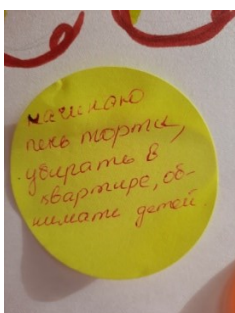 начинаю
печь торты,
убирать в
квартире, об-
нимать детей.